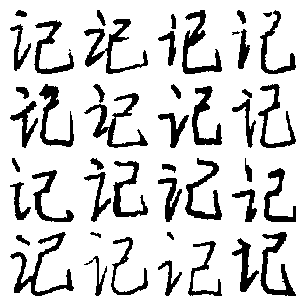 记记记记
记记记记
记记记记
记记记记